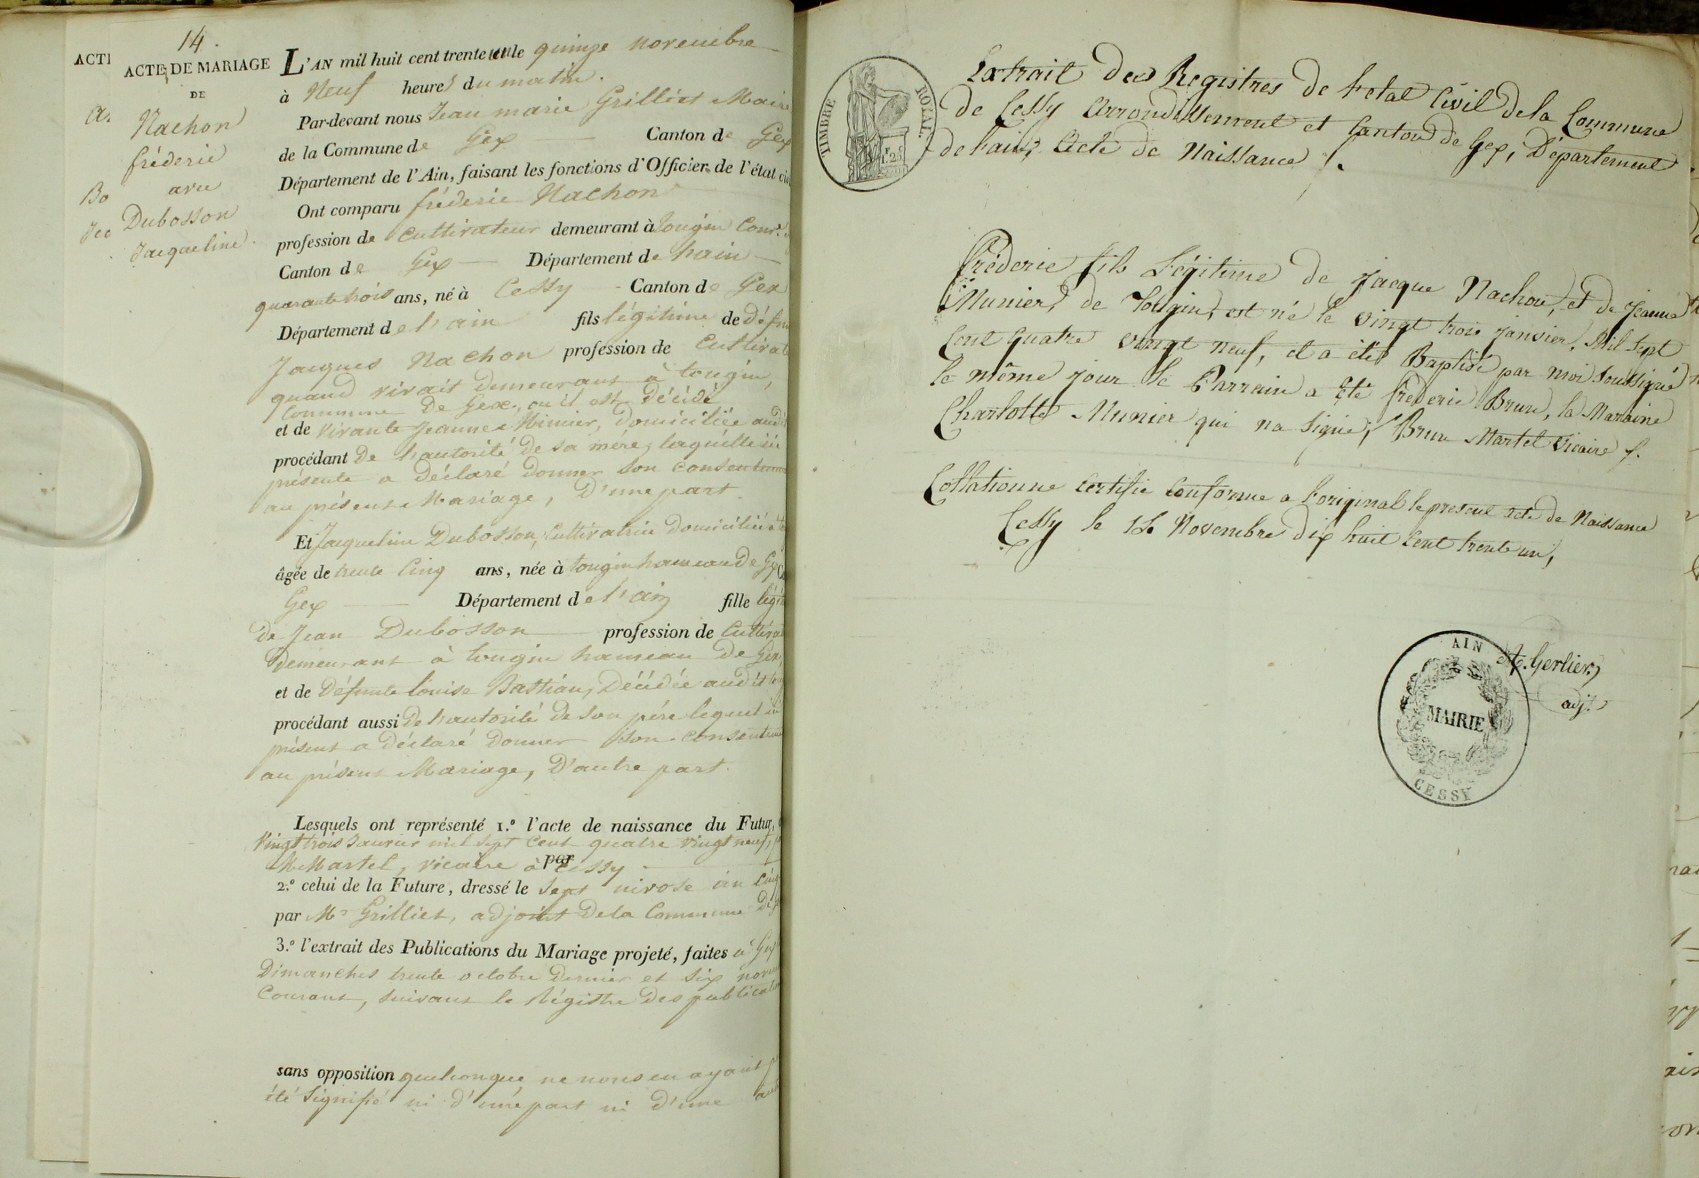 ACTI
14.
ACTE DE MARIAGE
DE
Nachon
fréderic
avec
Dubosson
Jacqueline.
Bo
L'AN mil huit cent trente un le quinze novembre
à Neuf heures du matin.
Par-devant nous Jean marie Grilliet Maire
de la Commune de Gex Canton de Gex
Département de l'Ain, faisant les fonctions d'Officier de l'état civ
Ont comparu fréderic Nachon
profession de Cultivateur demeurant à tougin Com.e
Canton de Gex Département de l'ain
quarante trois ans, né à Cessy Canton de Gex
Département de l'ain fils légitime de défu
Jacques Nachon profession de Cultivat
quand vivait demeurant à tougin,
Commune de Gex, ou il est décédé
et de vivante Jeanne Minier, domiciliée aud
procédant de l'autorité de sa mère, laquelle ici
présente a déclaré donner son consentem
au présent Mariage, D'une part.
Et Jacqueline Dubosson, Cultivatrice domiciliée
âgée de trente Cinq ans, née à tougin hameau de Gex
Gex Département de l'ain fille légit
de Jean Dubosson profession de Cultivat
demeurant à tougin hameau de Gex
et de défunte Louise Bastian, Décédée audit
procédant aussi de l'autorité de son père lequel ici
présent a déclaré donner son consentem
au présent Mariage, D'autre part.
Lesquels ont représenté 1.º l'acte de naissance du Futur,
Vingt trois Janvier mil sept cent quatre vingt neuf, par
M. Martel, vicaire à Cessy
2.º celui de la Future, dressé le sept nivose an Cinq
par Mr Grilliet, adjoint de la Commune de
3.º l'extrait des Publications du Mariage projeté, faites à Gex
Dimanches trente octobre dernier et six novem
Courant, suivant le Régistre des publicat
sans opposition quelconque, ne nous en ayant
été Signifié ni d'une part ni d'une
TIMBRE ROYAL
Extrait des Registres de l'etat Civil de la Commune
de Cessy arrondissement et Canton de Gex, Département
de l'ain, Acte de Naissance
Fréderic fils Légitime de Jacque Nachon, et de Jeanne
Munier, de Tougin, est né le vingt trois janvier, Mil Sept
Cent quatre vingt neuf, et a été Baptisé par moi Soussigné
le même jour le Parrain a été fréderic Brun, la Maraine
Charlotte Munier qui na signé, Brun Martel Vicaire
Collationne certifie conforme a l'original le present acte de Naissance
Cessy le 12 Novembre dix huit Cent trente un,
A. Gerlier
adj.t
AIN
MAIRIE
CESSY